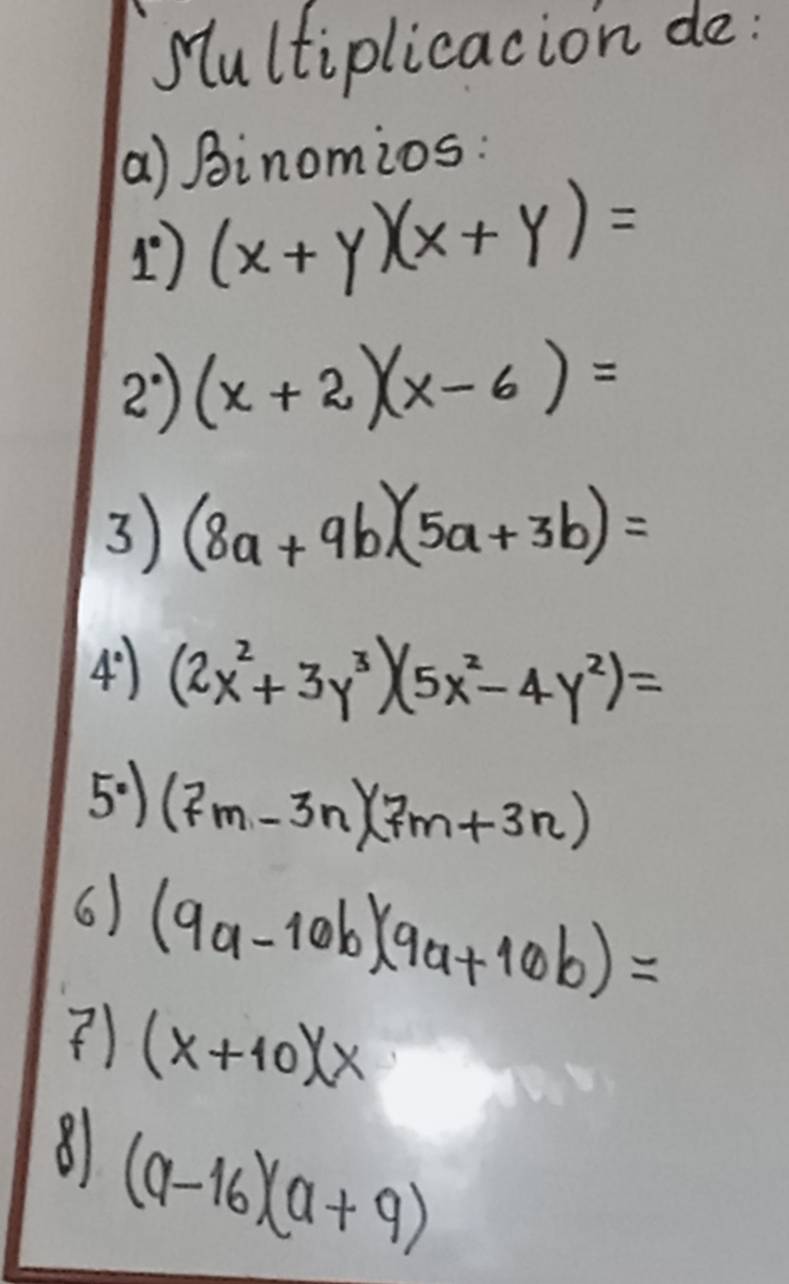 Multiplicación de:
a) Binomios:
1°) (x + y)(x + y) =
2°) (x + 2)(x - 6) =
3) (8a + 9b)(5a + 3b) =
4°) (2x² + 3y³)(5x² - 4y²) =
5°) (7m - 3n)(7m + 3n)
6) (9a - 10b)(9a + 10b) =
7) (x + 10)(x
8) (a - 16)(a + 9)